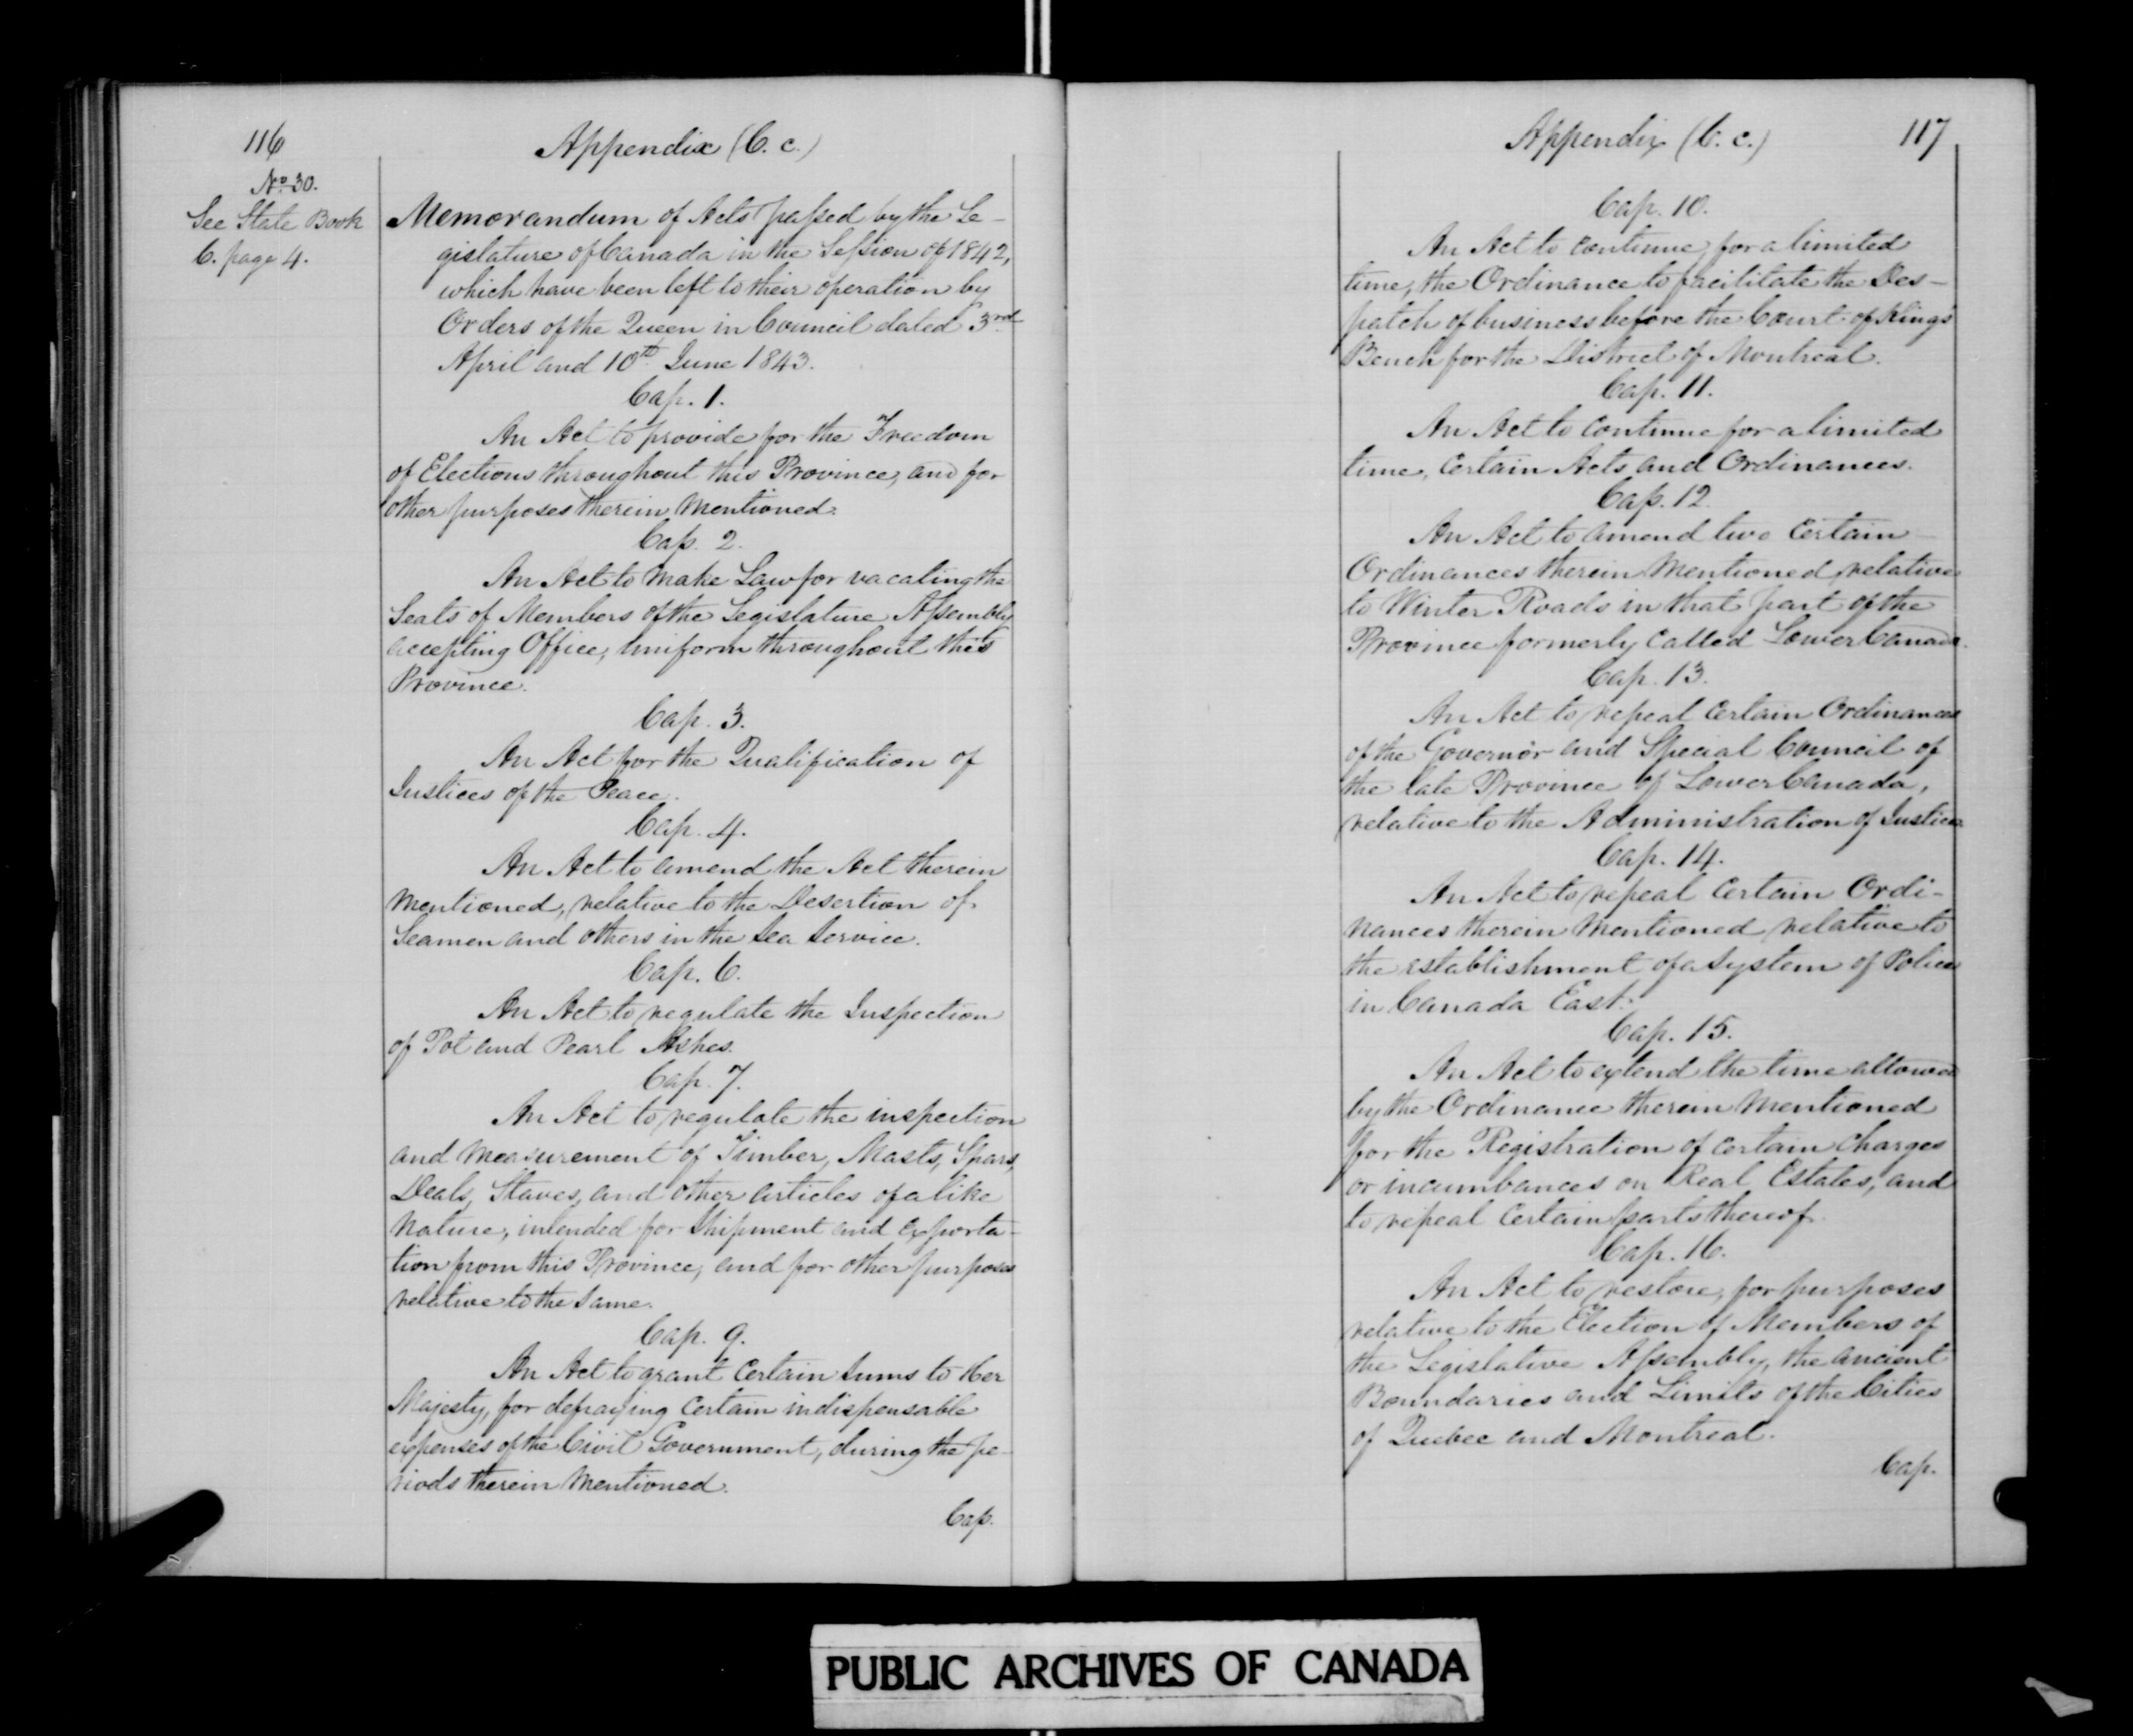 116
Appendix (C. c.)
No. 30.
See State Book
C. page 4.
Memorandum of Acts passed by the Le-
gislature of Canada in the Session of 1842,
which have been left to their operation by
Orders of the Queen in Council dated 3rd
April and 10th June 1843.
Cap. 1.
An Act to provide for the Freedom
of Elections throughout this Province, and for
other purposes therein mentioned.
Cap. 2.
An Act to make Law for vacating the
Seats of Members of the Legislature Assembly
accepting Office, uniform throughout this
Province.
Cap. 3.
An Act for the Qualification of
Justices of the Peace.
Cap. 4.
An Act to amend the Act therein
mentioned, relative to the Desertion of
Seamen and others in the Sea Service.
Cap. 6.
An Act to regulate the Inspection
of Pot and Pearl Ashes.
Cap. 7.
An Act to regulate the inspection
and measurement of Timber, Masts, Spars,
Deals, Staves, and other articles of a like
nature, intended for Shipment and exporta-
tion from this Province, and for other purposes
relative to the same.
Cap. 9.
An Act to grant certain sums to Her
Majesty, for defraying certain indispensable
expenses of the Civil Government, during the pe-
riods therein mentioned.
Cap.
Appendix (C. c.)
117
Cap. 10.
An Act to continue, for a limited
time, the Ordinance to facilitate the Des-
patch of business before the Court of King's
Bench for the District of Montreal.
Cap. 11.
An Act to continue for a limited
time, certain Acts and Ordinances.
Cap. 12.
An Act to amend two certain
Ordinances therein mentioned relative
to Winter Roads in that part of the
Province formerly called Lower Canada.
Cap. 13.
An Act to repeal certain Ordinances
of the Governor and Special Council of
the late Province of Lower Canada,
relative to the Administration of Justice.
Cap. 14.
An Act to repeal certain Ordi-
nances therein mentioned relative to
the establishment of a system of Police
in Canada East.
Cap. 15.
An Act to extend the time allowed
by the Ordinance therein mentioned
for the Registration of certain charges
or incumbances on Real Estates, and
to repeal certain parts thereof.
Cap. 16.
An Act to restore, for purposes
relative to the Election of Members of
the Legislative Assembly, the ancient
Boundaries and Limits of the Cities
of Quebec and Montreal.
Cap.
PUBLIC ARCHIVES OF CANADA